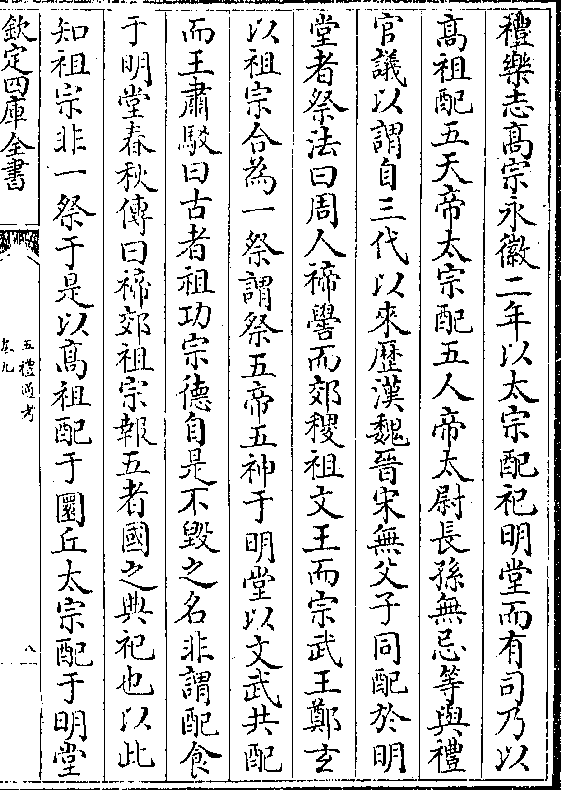 禮樂志髙宗永徽二年以太宗配祀明堂而有司乃以
髙祖配五天帝太宗配五人帝太尉長孫無忌等與禮
官議以謂自三代以來歴漢魏晉宋無父子同配於明
堂者祭法曰周人禘嚳而郊稷祖文王而宗武王鄭玄
以祖宗合為一祭謂祭五帝五神于明堂以文武共配
而王肅駁曰古者祖功宗德自是不毀之名非謂配食
于明堂春秋傳曰禘郊祖宗報五者國之典祀也以此
知祖宗非一祭于是以髙祖配于圜丘太宗配于明堂
欽定四庫全書
五禮通考
卷九
八